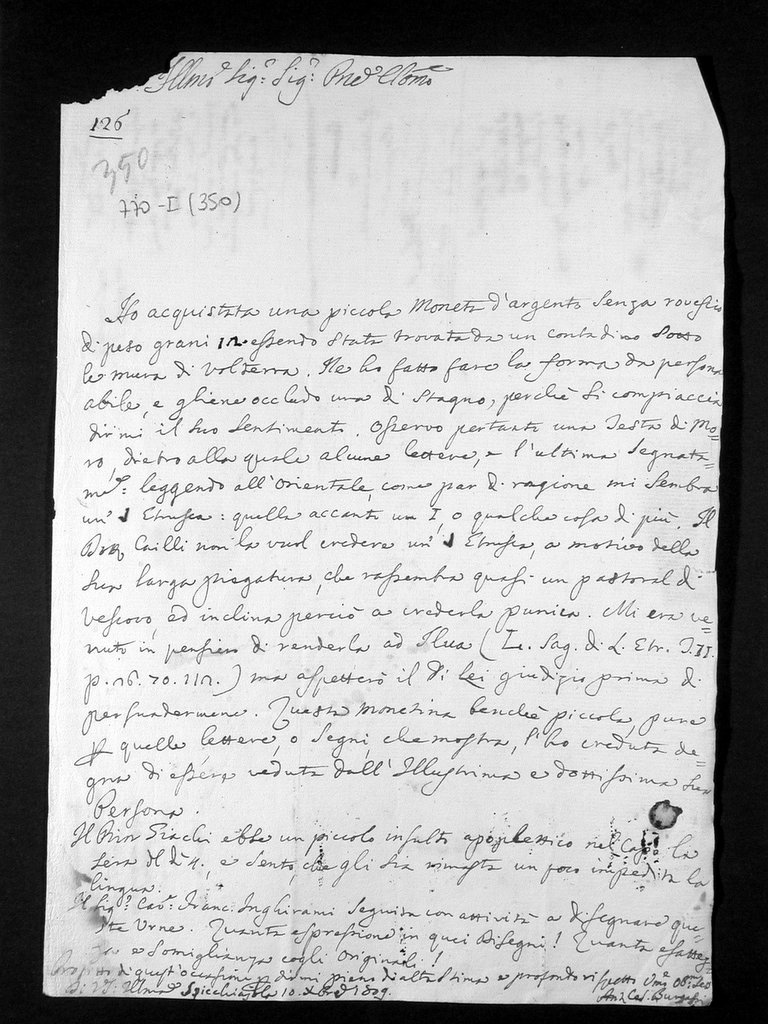 Illmo Sigr. Sigr. Pne Clmo
126
350
770-I (350)
Ho acquistata una piccola Moneta d'argento senza rovescio
di peso grani 12. essendo stata trovata da un contadino sotto
le mura di Volterra. Ne ho fatto fare la forma da persona
abile, e gliene occludo una di stagno, perchè si compiaccia
dirmi il suo sentimento. Osservo pertanto una Testa di Mo=
ro, dietro alla quale alcune lettere, e l'ultima segnata=
me.: leggendo all'orientale, come par di ragione mi sembra
un' Etrusca: quella accanto un I, o qualche cosa di più. Il
Cailli non la vuol credere un' Etrusca, a motivo della
sua larga piegatura, che rassembra quasi un pastoral di
Vescovo, ed inclina perciò a crederla punica. Mi era ve=
nuto in pensiero di renderla ad Ilua (L. Sag. di L. Etr. T.II.
p. 26. 70. 112.) ma aspetterò il di Lei giudizio prima di
persuadermene. Questa monetina benchè piccola, pure
quelle lettere, o segni, che mostra, l'ho creduta de=
gna di essere veduta dall'Illustrima e dottissima sua
Persona.
Il Prior Giachi ebbe un piccolo insulto apoplettico nel Capo la
sera del dì 4., e sento, che gli sia rimasta un poco impedita la
lingua.
Il Sigr. Cavr. Franc. Inghirami seguita con attività a disegnare que=
ste Urne. Quanta espressione in quei Disegni! Quanta esattez=
za e somiglianza cogli Originali!
Profitto di quest'occasione dirmi pieno di alta stima e profondo rispetto
Di VS: Illma Spicchiajola 10. Xbre 1809.